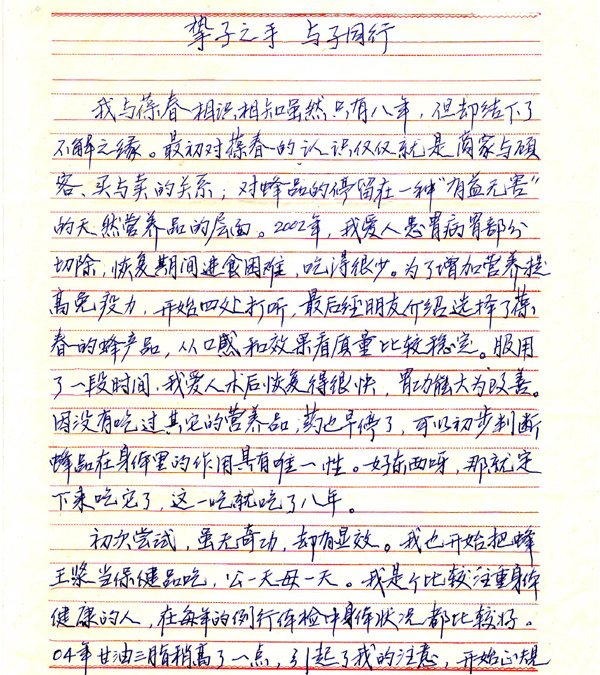 挚子之手 与子同行
我与葆春相识相知虽然只有八年，但却结下了
不解之缘。最初对葆春的认识仅仅就是商家与顾
客、买与卖的关系；对蜂品的停留在一种“有益无害”
的天然营养品的层面。2002年，我爱人患胃病胃部分
切除，恢复期间进食困难，吃得很少。为了增加营养提
高免疫力，开始四处打听，最后经朋友介绍选择了葆
春的蜂产品，从口感和效果看质量比较稳定。服用
了一段时间，我爱人术后恢复得很快，胃功能大为改善。
因没有吃过其它的营养品，药也早停了，可以初步判断
蜂品在身体里的作用具有唯一性。好东西呀，那就定
下来吃它了，这一吃就吃了八年。
初次尝试，虽无奇功，却有显效。我也开始把蜂
王浆当保健品吃，公一天母一天。我是个比较注重身体
健康的人，在每年的例行体检中身体状况都比较好。
04年甘油三脂稍高了一点，引起了我的注意，开始心规